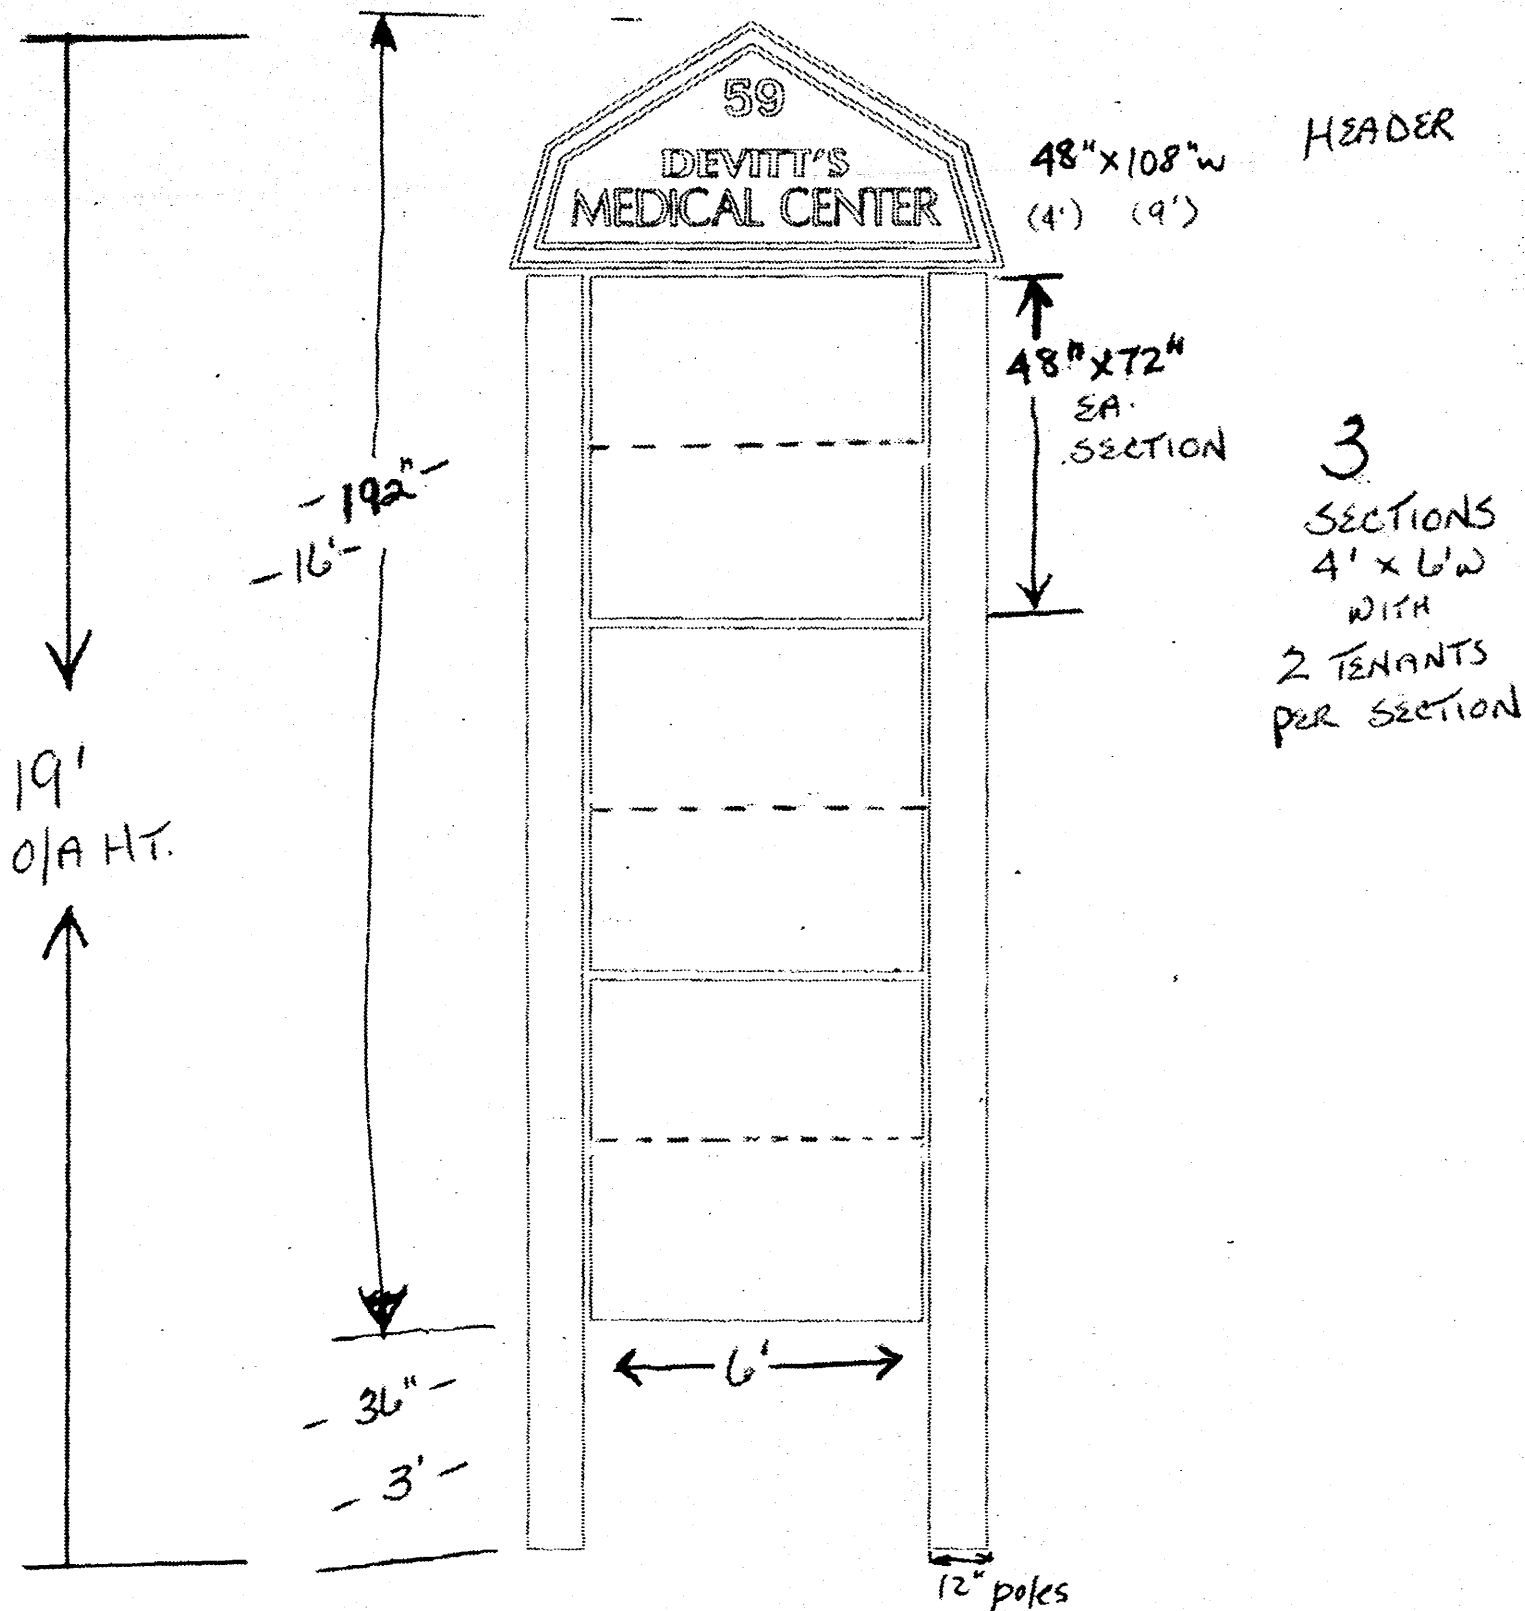 59
DEVITT'S
MEDICAL CENTER
48" x 108" w
(4') (9')
HEADER
48" x 72"
EA.
SECTION
3
SECTIONS
4' x 6' w
WITH
2 TENANTS
PER SECTION
- 192" -
- 16' -
19'
O/A HT.
6'
- 36" -
- 3' -
12" poles